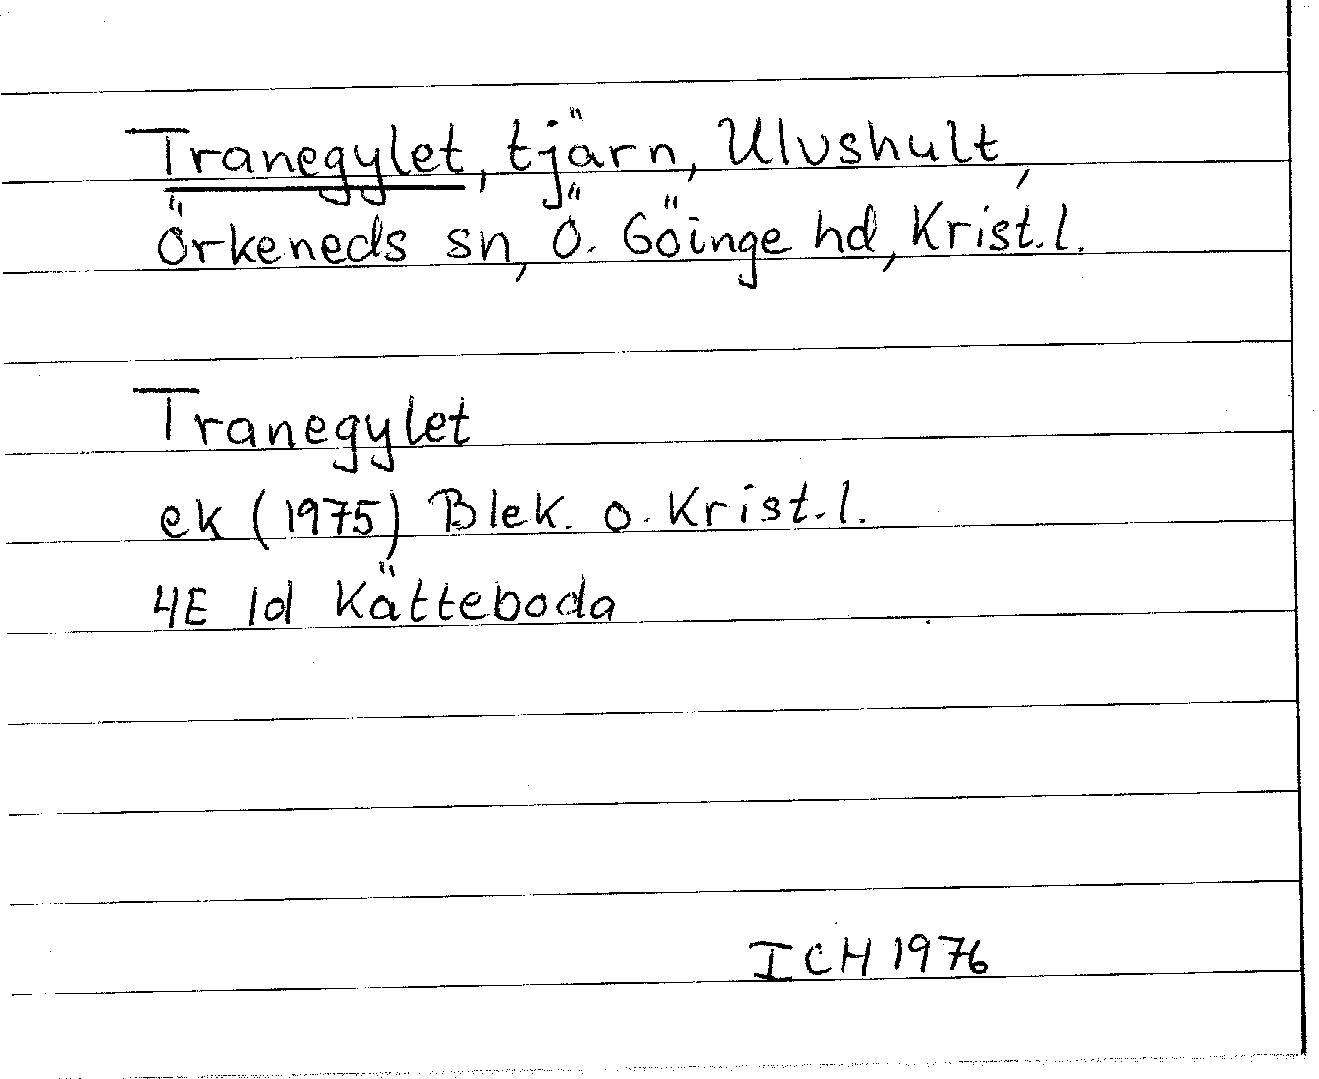 Tranegylet, tjärn, Ulvshult,
Örkeneds sn, Ö. Göinge hd, Krist.l.
Tranegylet
ek (1975) Blek. o. Krist.l.
4E 1d Kätteboda
ICH 1976